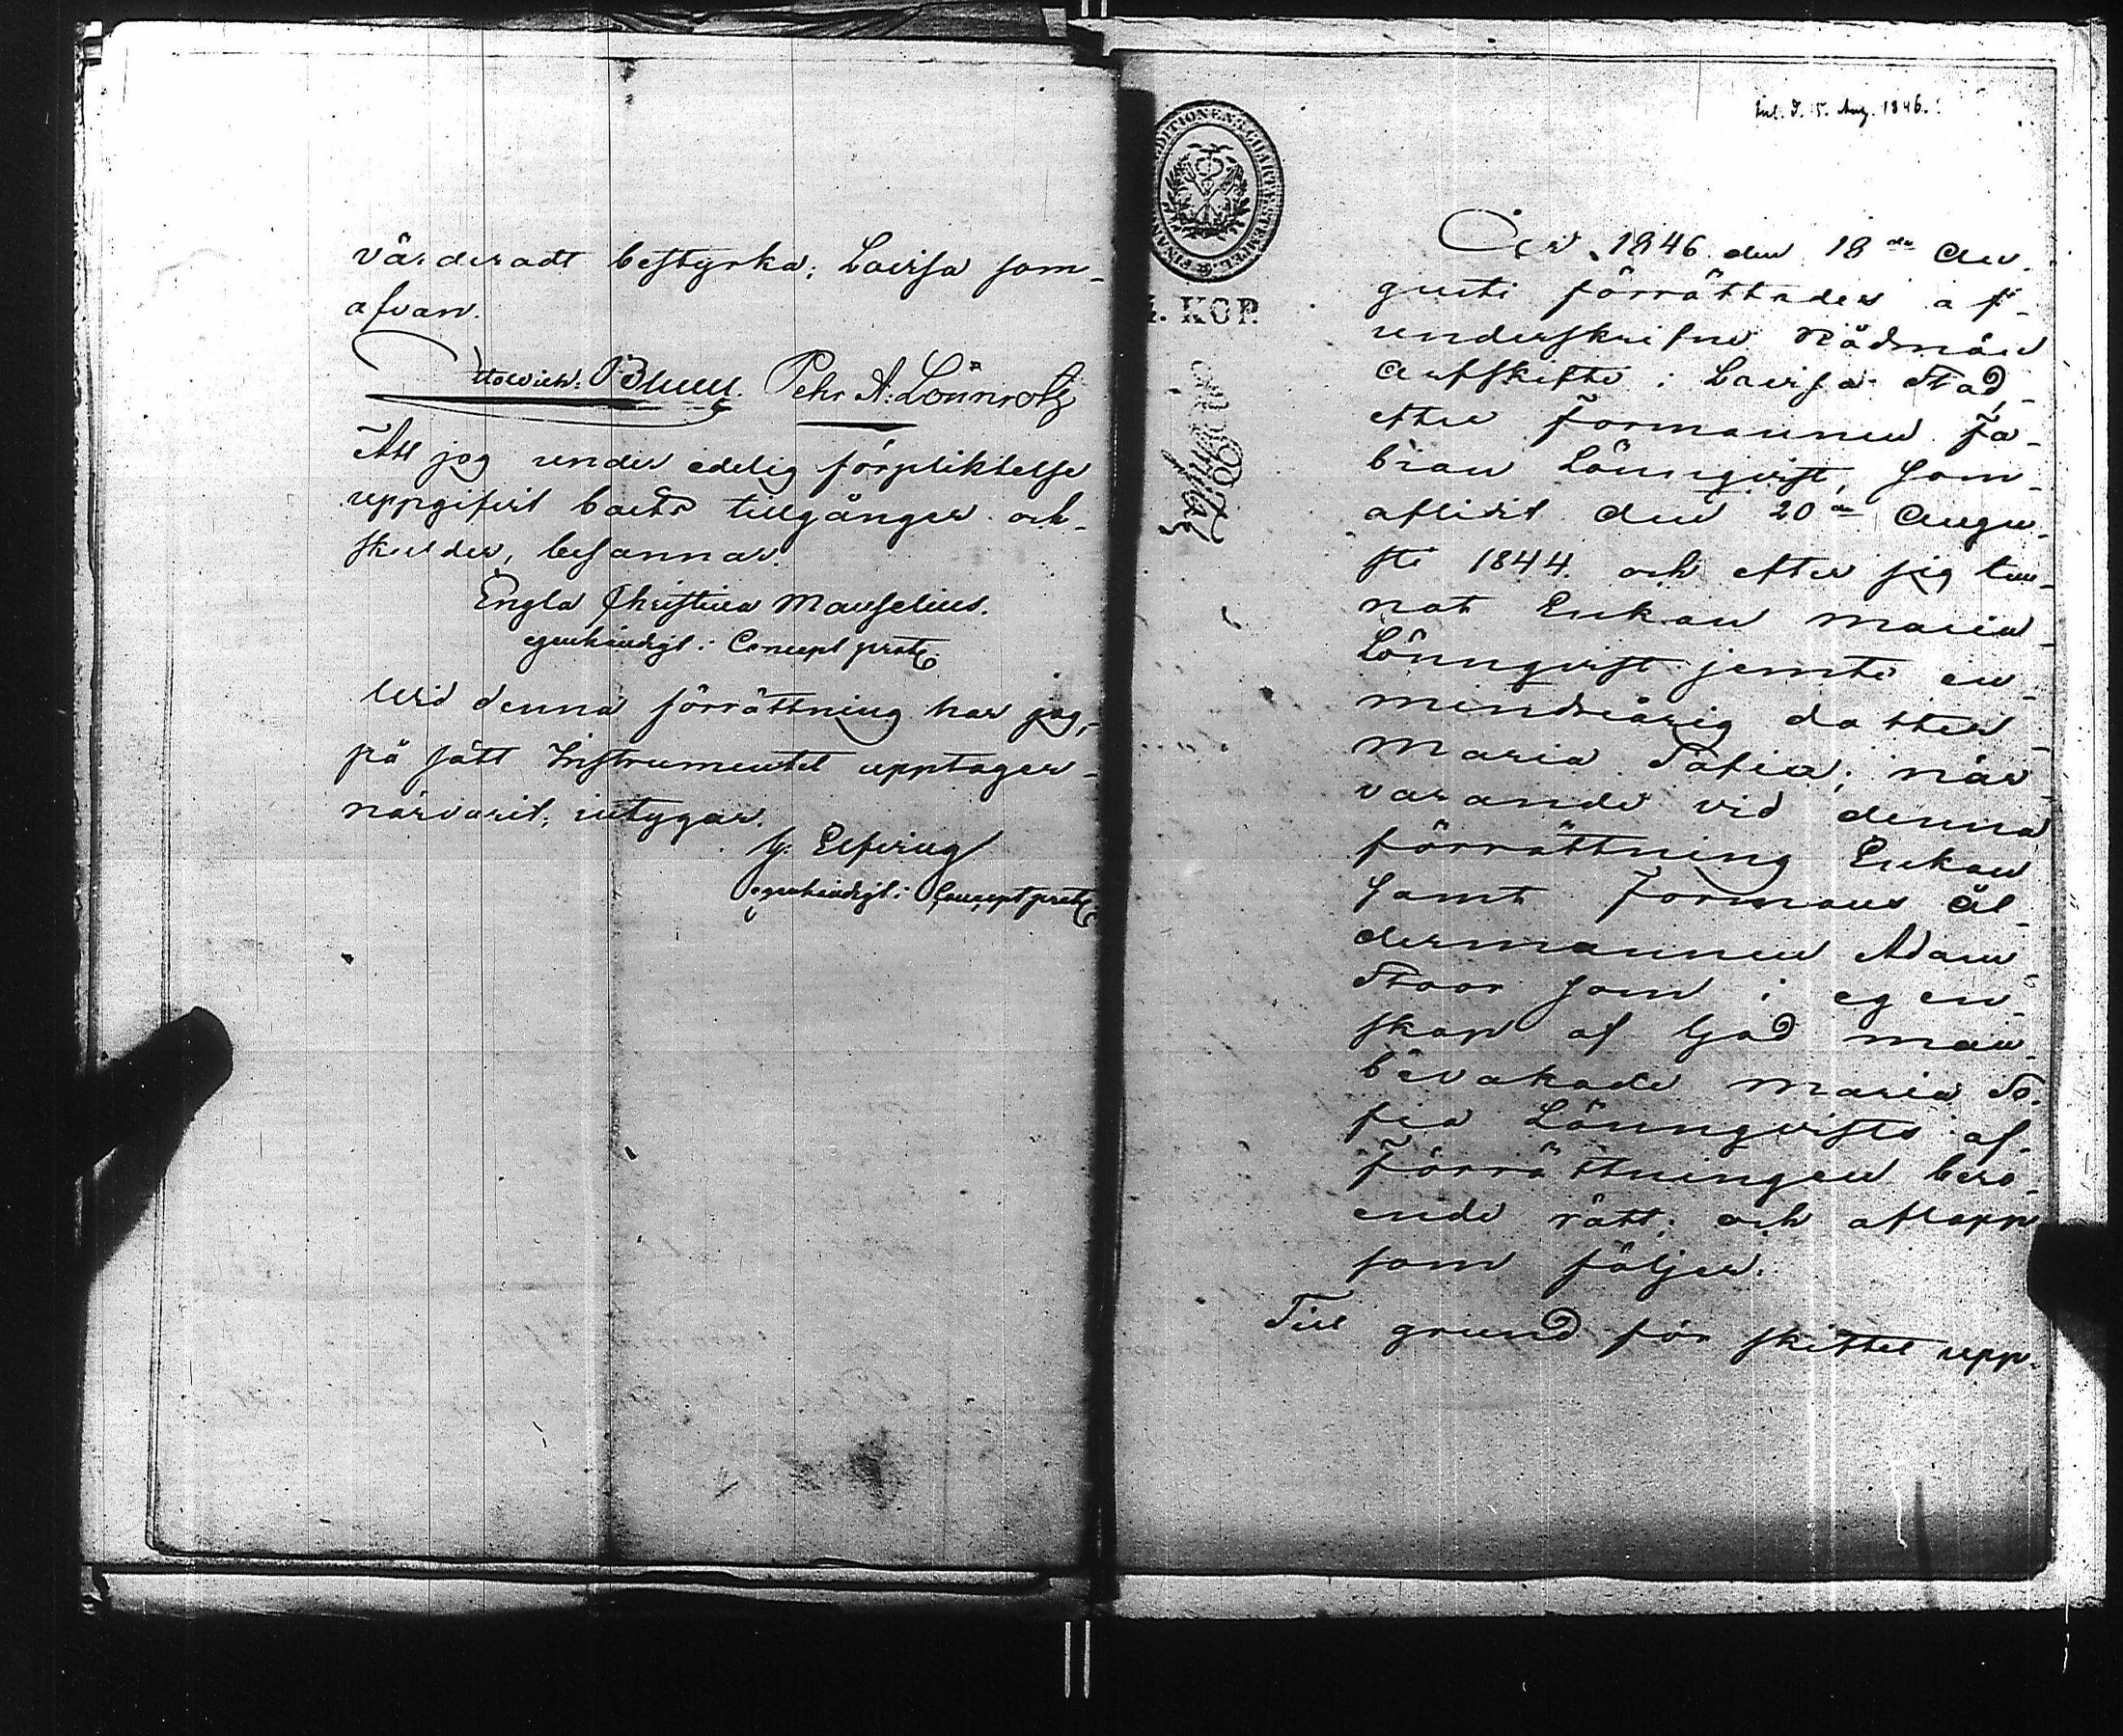 värderadt bestyrka; Lovisa som
ofvan.
Blum. Pehr A: Lönnrot
Att jag under edelig förpliktelse
uppgifvit boets tillgångar och
skulder, besannar.
Engla Christina Mauselius.
egenhändigt i Concept prot.
Wid denna förrättning har jag,
på sätt Instrumentet upptager
närvarit, intygar.
G. Elfving
egenhändigt i Concept prot.
Inl. d. 5. Aug. 1846.
4. KOP.
År 1846 den 18de Au-
gusti förrättades af
underskrifne Rådmän
Arfskifte i Lovisa Stad,
efter Formannen Fa-
bian Lönnqvist, som
aflidit den 20de Augu-
sti 1844 och efter sig lem-
nat Enkan Maria
Lönnqvist jemte en
minderårig dotter
Maria Sofia; när
varande vid denna
förrättning Enkan
samt Formans Ål-
dermannen Adam
Stoor som i egen-
skap af God man
bevakade Maria So-
fia Lönnqvists af
Förrättningen bero-
ende rätt; och aflopp
som följer.
Till grund för skiftet upp-